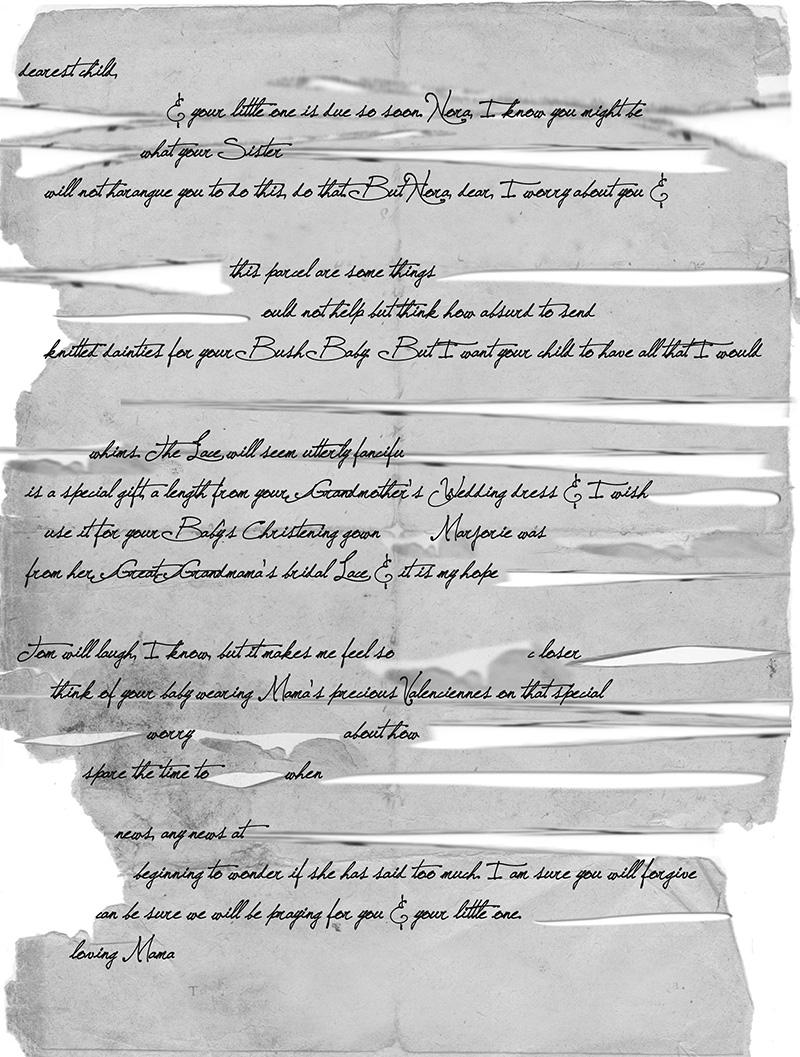 dearest child,
& your little one is due so soon. Nora, I know you might be
what your Sister
will not harangue you to do this, do that. But Nora, dear, I worry about you &
this parcel are some things
ould not help but think how absurd to send
knitted dainties for your Bush Baby. But I want your child to have all that I would
whims. The Lace will seem utterly fancifu
is a special gift, a length from your Grandmother's Wedding dress & I wish
use it for your Baby's Christening gown Marjorie was
from her Great Grandmama's bridal Lace & it is my hope
Tom will laugh, I know, but it makes me feel so closer
think of your baby wearing Mama's precious Valenciennes on that special
worry about how
spare the time to when
news, any news at
beginning to wonder if she has said too much. I am sure you will forgive
can be sure we will be praying for you & your little one.
loving Mama